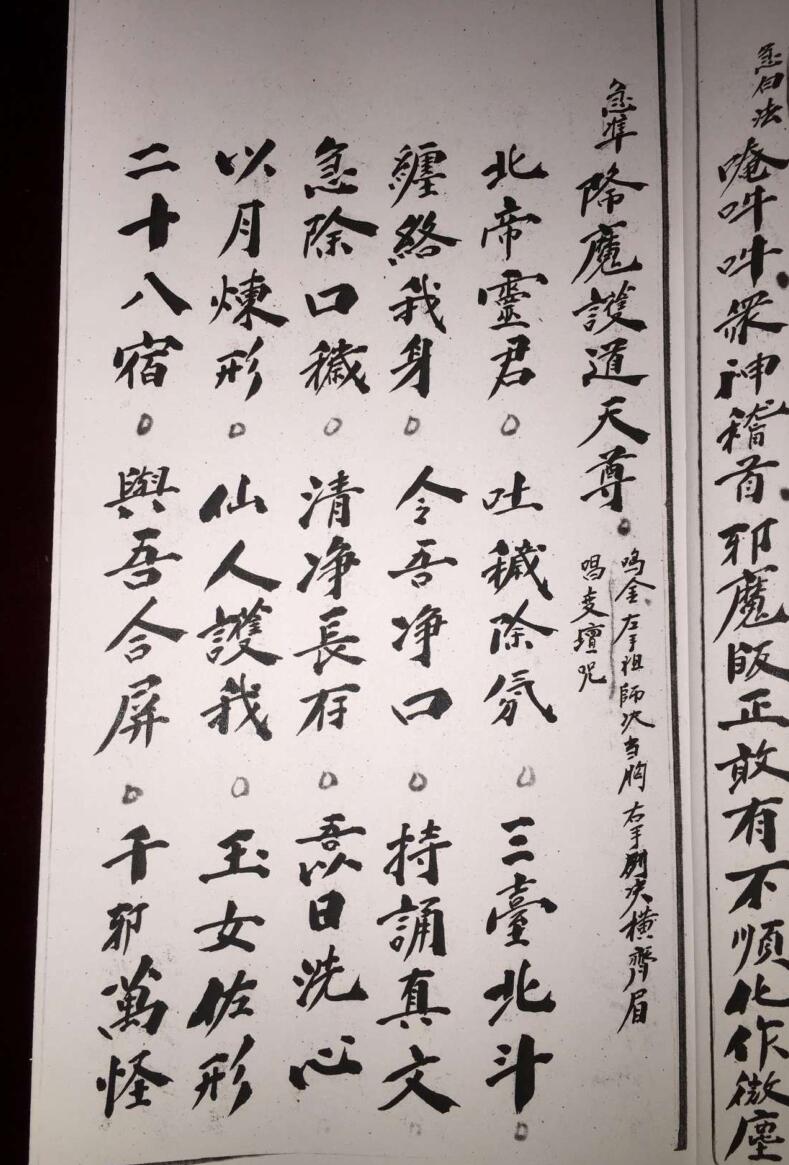 急白法 唵吽吽眾神稽首邪魔皈正敢有不順化作微塵
急準 降魔護道天尊。
鳴金左手祖師决当胸右手劍决橫齊眉
唱支壇咒
北帝靈君。吐穢除氛。三臺北斗。
纏絡我身。令吾净口。持誦真文。
急除口穢。清净長存。吾以日洗心
以月煉形。仙人護我。玉女佐形
二十八宿。與吾合屏。千邪萬怪